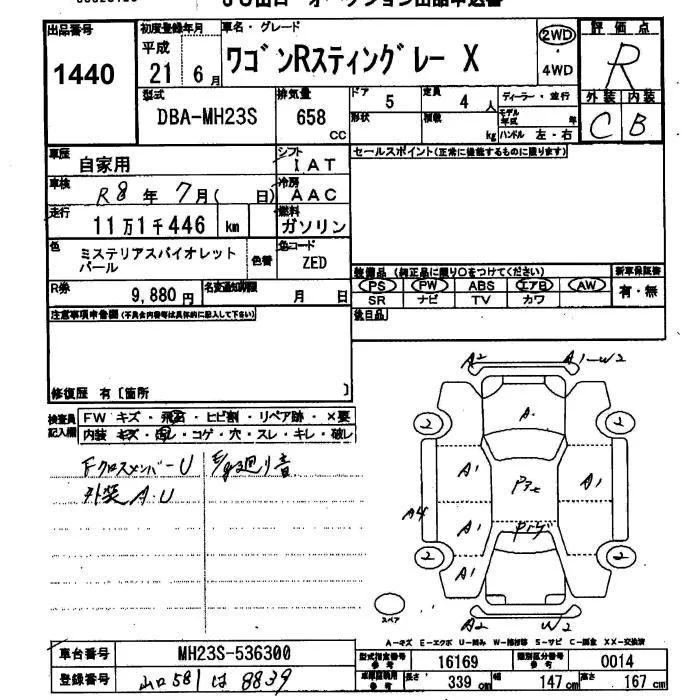 出品番号
1440
初度登録年月
平成
21年6月
車名・グレード
ワゴンRスティングレー X
2WD
・
4WD
評価点
R
外装 内装
C B
型式
DBA-MH23S
排気量
658
CC
ドア 5
定員 4人
形状
積載 kg
ディーラー・並行
モデル年式 年
ハンドル 左・右
車歴
自家用
シフト
IAT
セールスポイント(正常に機能するものに限ります)
車検
R8年7月( 日)
冷房
AAC
走行
11万1千446 km
燃料
ガソリン
色
ミステリアスバイオレット
パール
色替
色コード
ZED
装備品 (純正品に限り○をつけてください)
PS PW ABS エアB AW
SR ナビ TV カワ
新車保証書
有・無
R券
9,880円
名変通知期限
月 日
後日品
注意事項申告欄(不具合内容等は具体的に記入して下さい)
修復歴 有〔箇所 〕
検査員
記入欄
FW キズ・飛石・ヒビ割・リペア跡・×要
内装 キズ・汚レ・コゲ・穴・スレ・キレ・破レ
Fクロスメンバー U
外装 A.U
廻り音
A2
A1-W2
A.
2
2
A1
A1
A4
A1
A1
2
2
A2
W2
スペア
A-キズ E-エクボ U-凹み W-補修跡 S-サビ C-腐食 XX-交換済
車台番号
MH23S-536300
登録番号
山口581は8839
型式指定番号
参考
16169
類別区分番号
参考
0014
長さ 339cm
幅 147cm
高さ 167cm